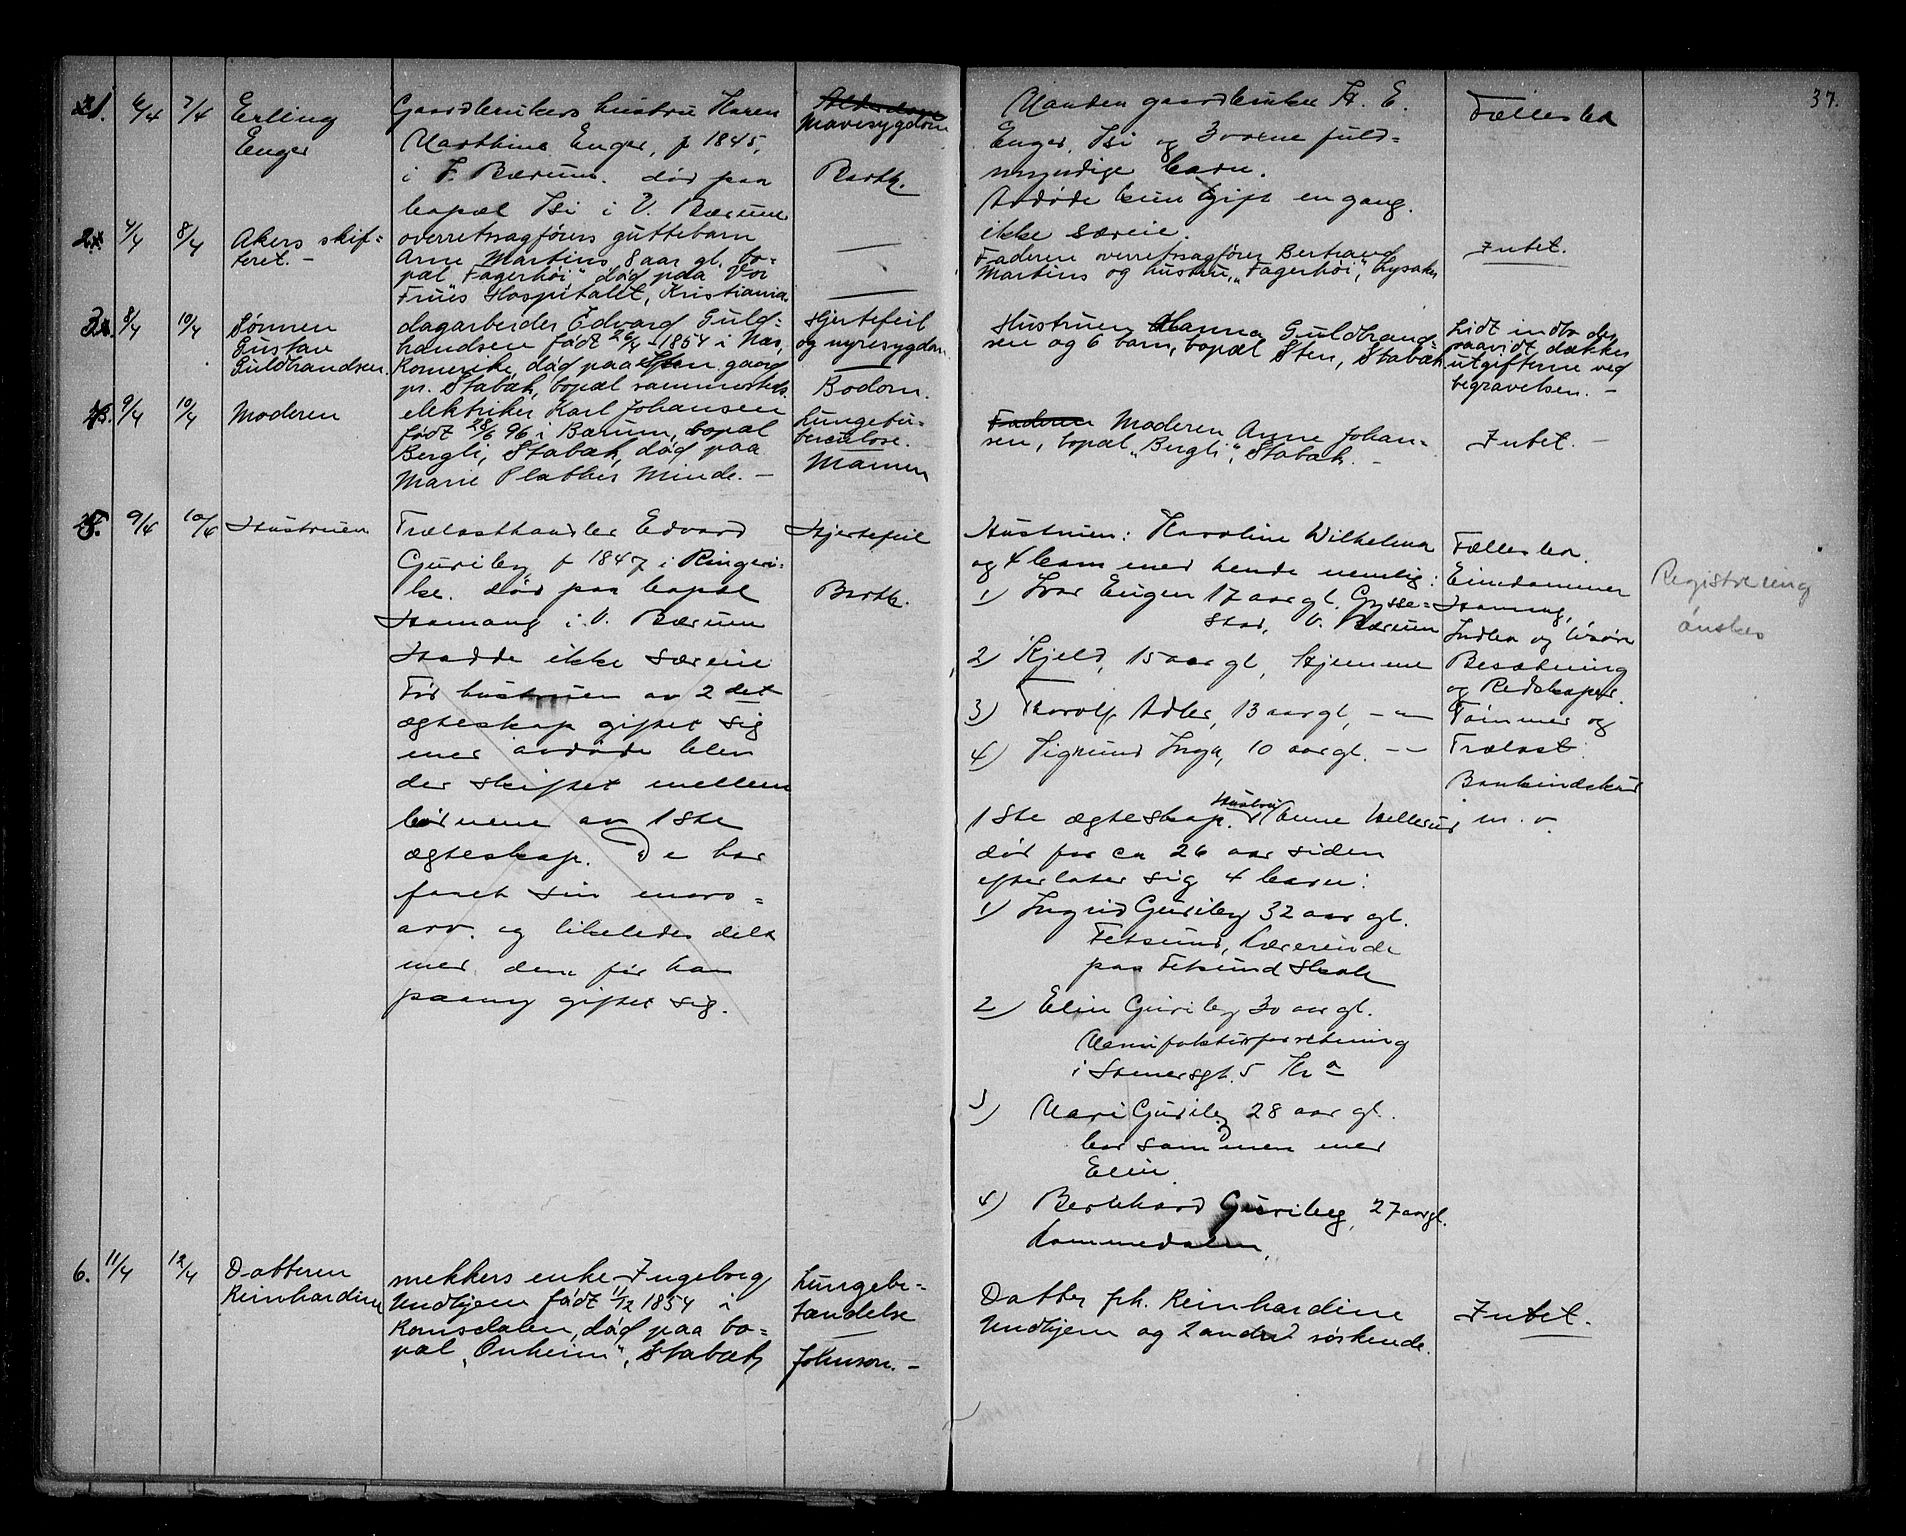 37.
1. 6/4 7/4 Erling
Enger
Gaardbrukers hustru Karen
Marthine Enger, f 1845,
i V. Bærum. død paa
bopæl Isi i V. Bærum
Mavesygdom
Barth.
Manden gaardbruker K. E.
Enger, Isi og 3 voxne fuld=
myndige barn.
Avdøde kun gift en gang.
ikke særeie.
Fællesbo
2. 4/4 8/4 Akers skif=
teret. –
overretssagførers guttebarn
Arne Martins, 8 aar gl. bo=
pæl "Fagerhøi" død paa Vor
Frues Hospitalet, Kristiania
Faderen overretssagfører Bertrand
Martins og hustru, "Fagerhøi", Lysaker
Intet.
3. 8/4 10/4 Sønnen
Gustav
Guldbrandsen.
dagarbeider Edvard Guld=
brandsen født 26/4 1854 i Næs,
Romerike, død paa Sten gaard
pr. Stabæk, bopæl sammesteds.
Hjertefeil
og nyresygdom.
Bodom.
Hustruen Hanna Guldbrand=
sen og 6 barn, bopæl Sten, Stabæk
Lidt indbo der
saavidt dækker
utgifterne ved
begravelsen. –
4. 9/4 10/4 Moderen
elektriker Karl Johansen
født 28/6 96 i Bærum, bopæl
Bergli, Stabæk, død paa
Marie Plathes Minde. –
Lungetu=
berculose.
Mamen
Faderen Moderen Anne Johan=
sen, bopæl "Bergli", Stabæk. –
Intet. –
5. 9/4 10/4 Hustruen
Trælasthandler Edvard
Guriby f 1847 i Ringeri=
ke. død paa bopæl
Hamang i V. Bærum
Hadde ikke særeie
Før hustruen av 2det
ægteskap giftet sig
med avdøde blev
der skiftet mellem
børnene av 1ste
ægteskap. De har
faaet sin mors=
arv. og likeledes delt
med dem før han
paany giftet sig.
Hjertefeil
Barth.
Hustruen: Karoline Wilhelma
og 4 barn med hende nemlig:
1) Ivar Eugen 17 aar gl. Gysse=
stad, V. Bærum
2) Kjeld, 15 aar gl, Hjemme
3) Thorolf Adler, 13 aar gl, – " –
4) Sigmund Inga, 10 aar gl. – –
1ste ægteskap. Hustru Anne
død for ca 26 aar siden
efterlater sig 4 barn:
1) Ingrid Guriby 32 aar gl.
Fetsund, Lærerinde
paa Fetsund Skole
2) Elin Guriby 30 aar gl.
Manufakturforretning
i 5 Kr a
3) Mari Guriby 28 aar gl.
bor sammen med
Elin.
4) Bernhard Guriby, 27 aar gl.
Lommedalen,
Fællesbo.
Eiendommen
Hamang,
Indbo og løsøre
Besætning
og Redskaper.
Tømmer og
Trælast.
Bankindskud
m. v.
Registrering
ønskes
6. 11/4 12/4 Datteren
Reinhardine
snekkers enke Ingeborg
Undhjem født 11/12 1854 i
Romsdalen, død paa bo=
pæl "Onheim", Stabæk
Lungebe=
tændelse
Johnson. –
Datter frk. Reinhardine
Undhjem og 2 andre søskende.
Intet.